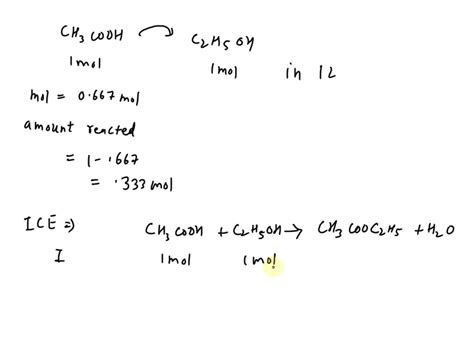 CH3COOH C2H5OH
1mol 1mol in 1L
mol = 0.667 mol
amount reacted
= 1-.667
= .333 mol
ICE⇒ CH3COOH + C2H5OH → CH3COOC2H5 + H2O
I 1mol 1mol